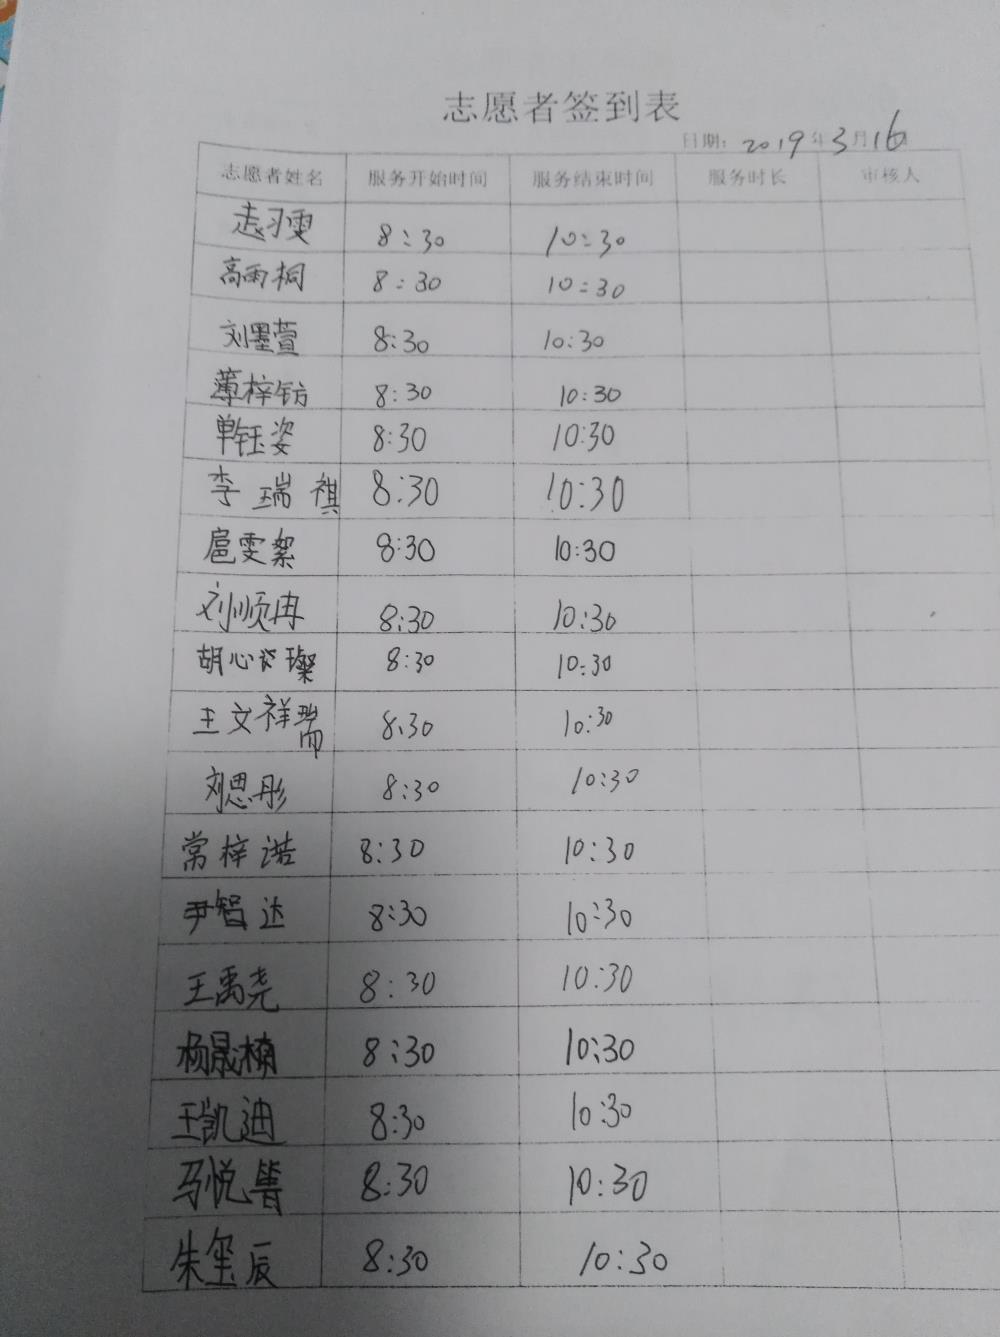 志愿者签到表
日期: 2019年3月16
志愿者姓名 服务开始时间 服务结束时间 服务时长 审核人
8:30 10:30
高雨桐 8:30 10:30
刘墨萱 8:30 10:30
薄梓钫 8:30 10:30
单钰姿 8:30 10:30
李瑞祺 8:30 10:30
扈雯絮 8:30 10:30
刘顺冉 8:30 10:30
胡心 璨 8:30 10:30
王文祥瑞 8:30 10:30
刘思彤 8:30 10:30
常梓诰 8:30 10:30
尹智达 8:30 10:30
王禹尧 8:30 10:30
杨晟楠 8:30 10:30
王凯迪 8:30 10:30
马悦 8:30 10:30
朱玺辰 8:30 10:30